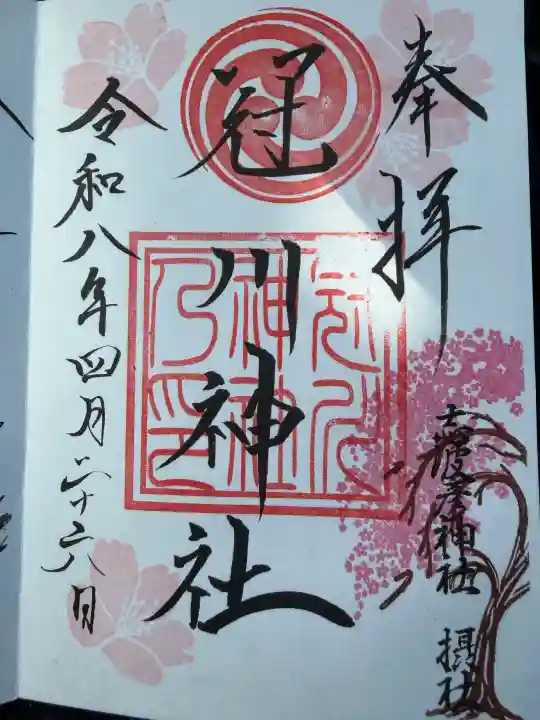 奉拝
志波彦神社 摂社
冠川神社
冠川
神社
乃印
令和八年四月二十六日